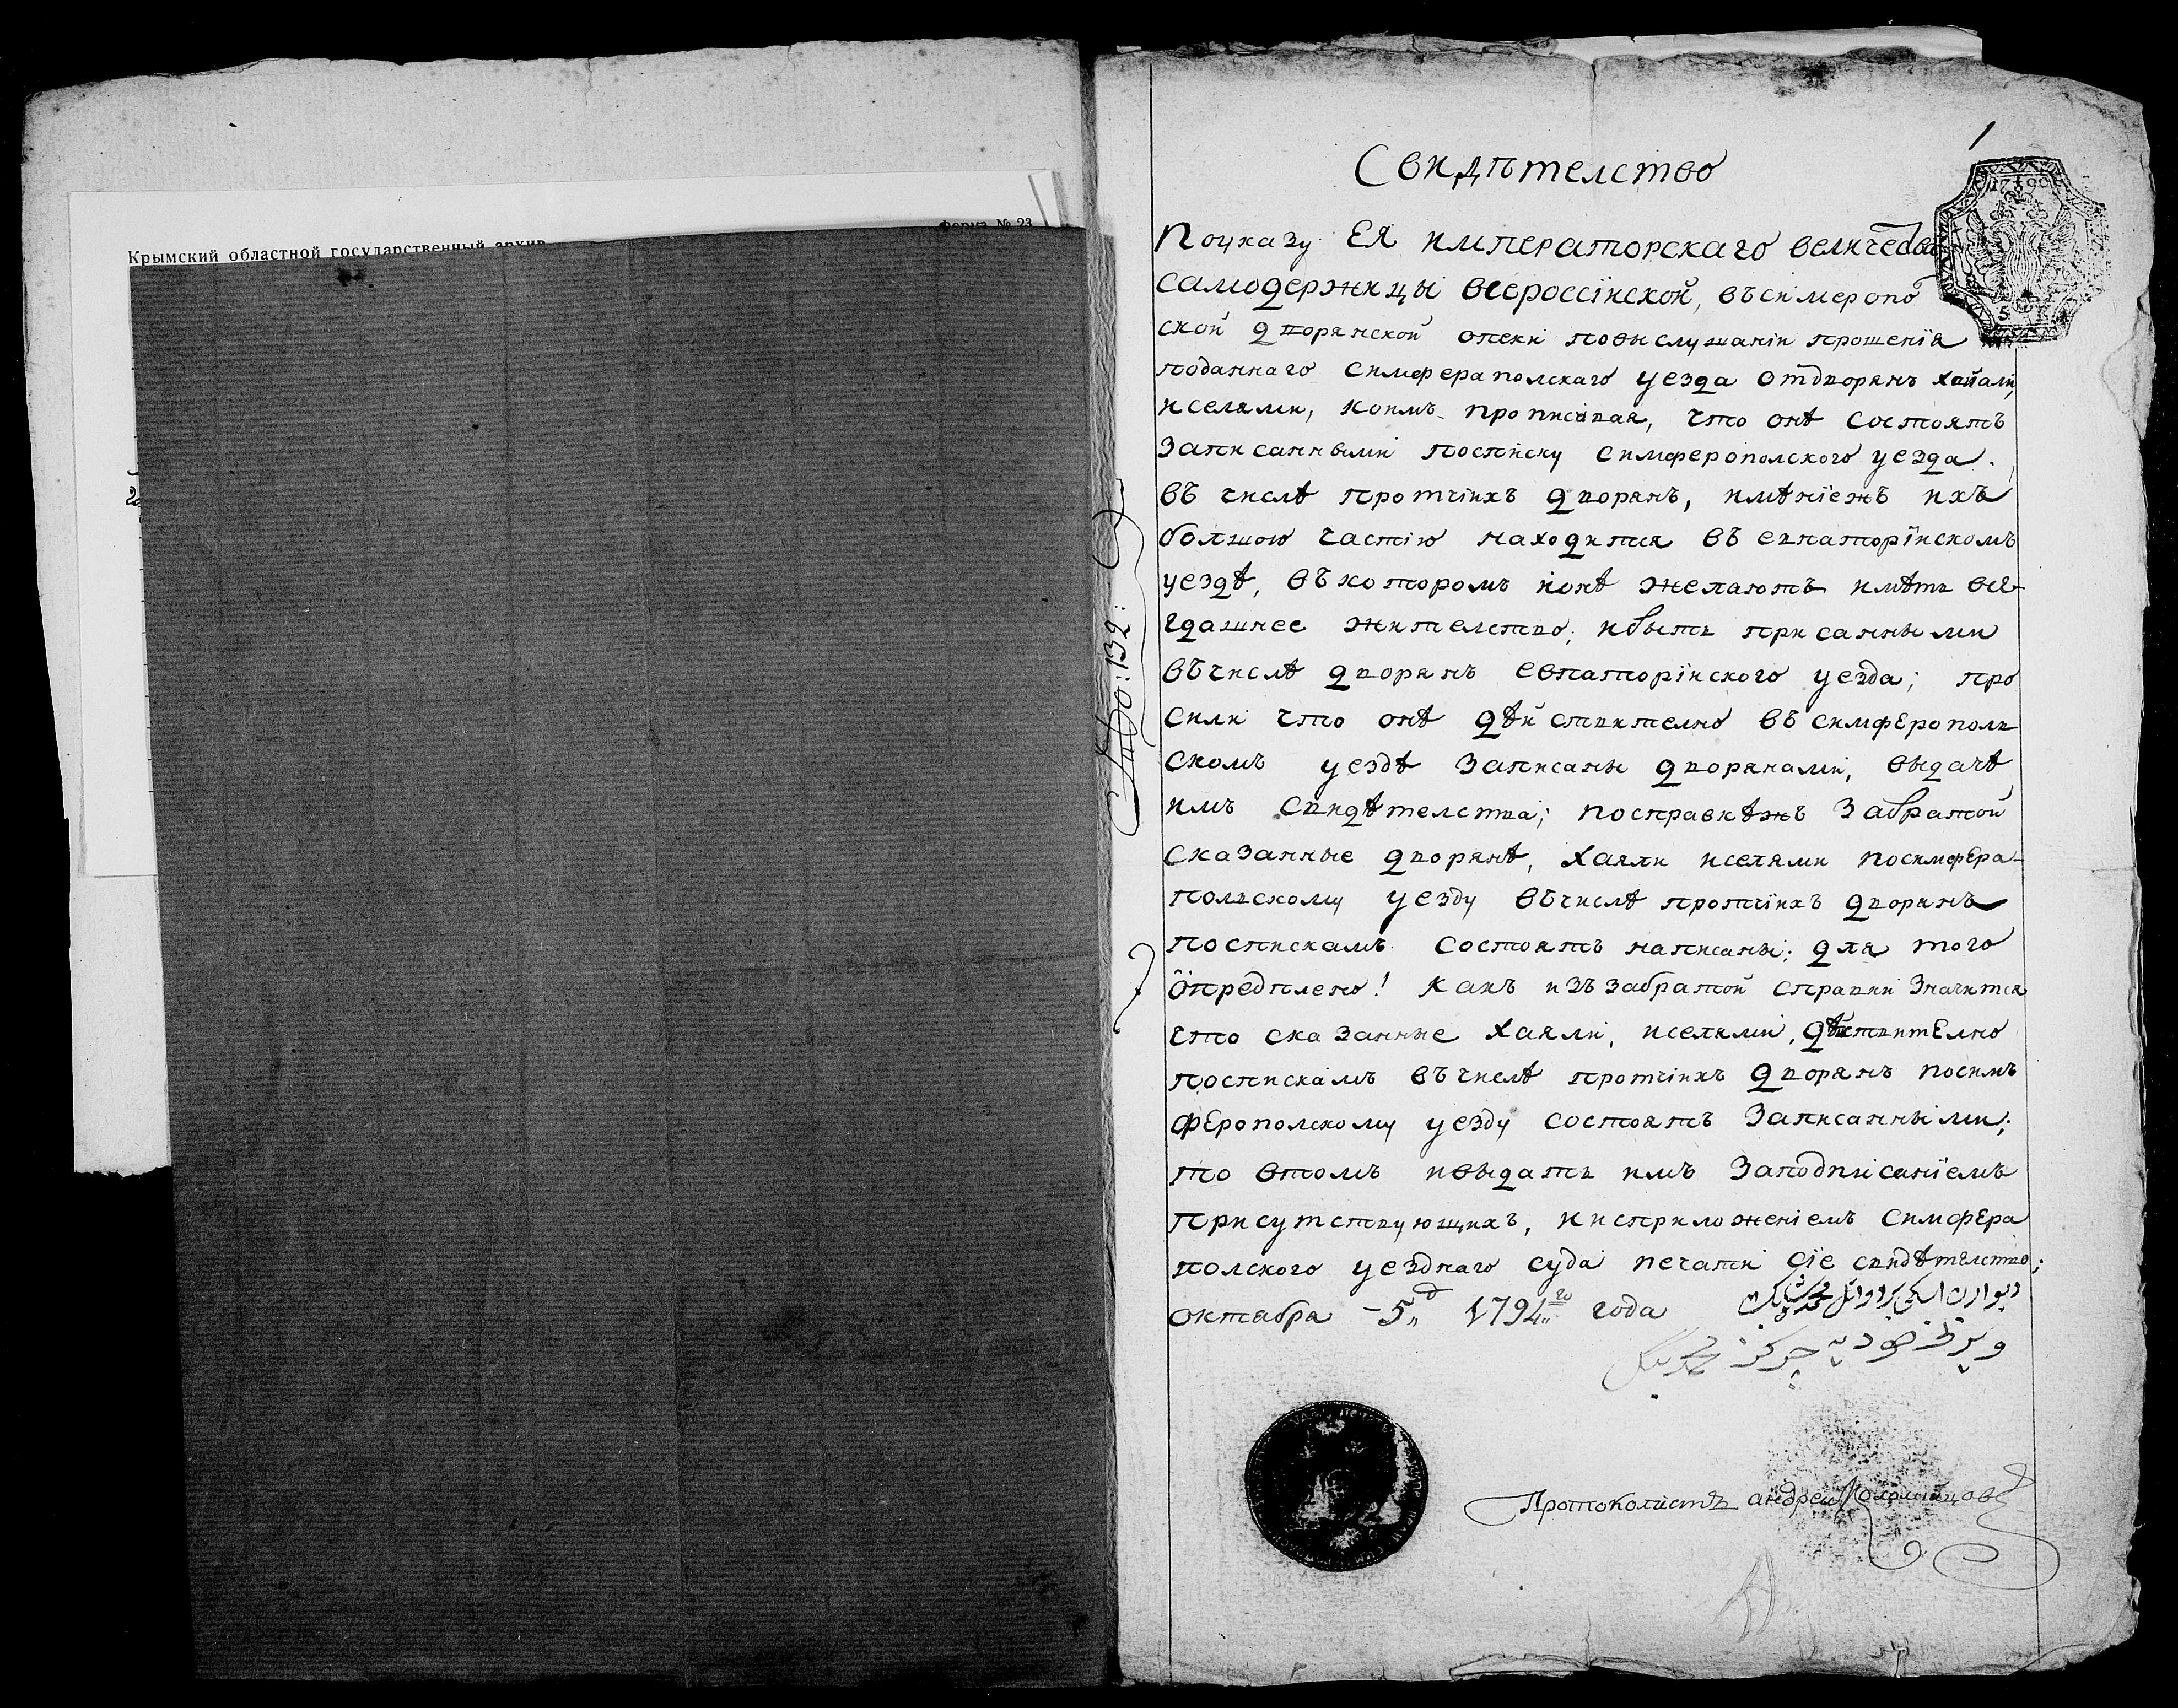 Форма № 23
Крымский областной государственный архив
1
Свидѣтелство
Поуказу ЕЯ императорскаго величества
самодержицы всероссiнской, въсимеропо
ской дворянской опеки повыслушанiи прошенiя
поданнаго симфераполскаго уезда отдворянъ
иселями, коимъ прописовая, что онѣ состоятъ
записанными посписку симферополского уезда.
въ числѣ протчiихъ дворянъ, имѣнiежъ ихъ
болшою частiю находится въ евпаторiнскомъ
уездѣ, въкоторомъ ионѣ желаютъ имѣть все-
гдашнее жителство; ибыть присанными
въчислѣ дворянъ евпаторiнского уезда; про
сили что онѣ дѣйствително въсимферополь
скомъ уездѣ записаны дворянами, выдачѣ
имъ свидѣтелства; посправкѣжъ забратой
сказанные дворянѣ, хаяли иселями посимфера-
польскому уезду въчислѣ протчiихъ дворянъ
поспискамъ состоятъ написаны; для того
опредплено! какъ изъзабратой справки значится
что сказанные хаяли, иселями, дѣйствително
поспискамъ въчислѣ протчiихъ дворянъ посимъ
ферополскому уезду состоятъ записанными;
то втомъ ивыдать имъ заподписанiемъ
присутствующихъ, исприложенiемъ симфера
полского уезднаго суда печати сiе свидѣтелство;
октабря -5„ 1794„го года
Протоколистъ андрей
132:
1790